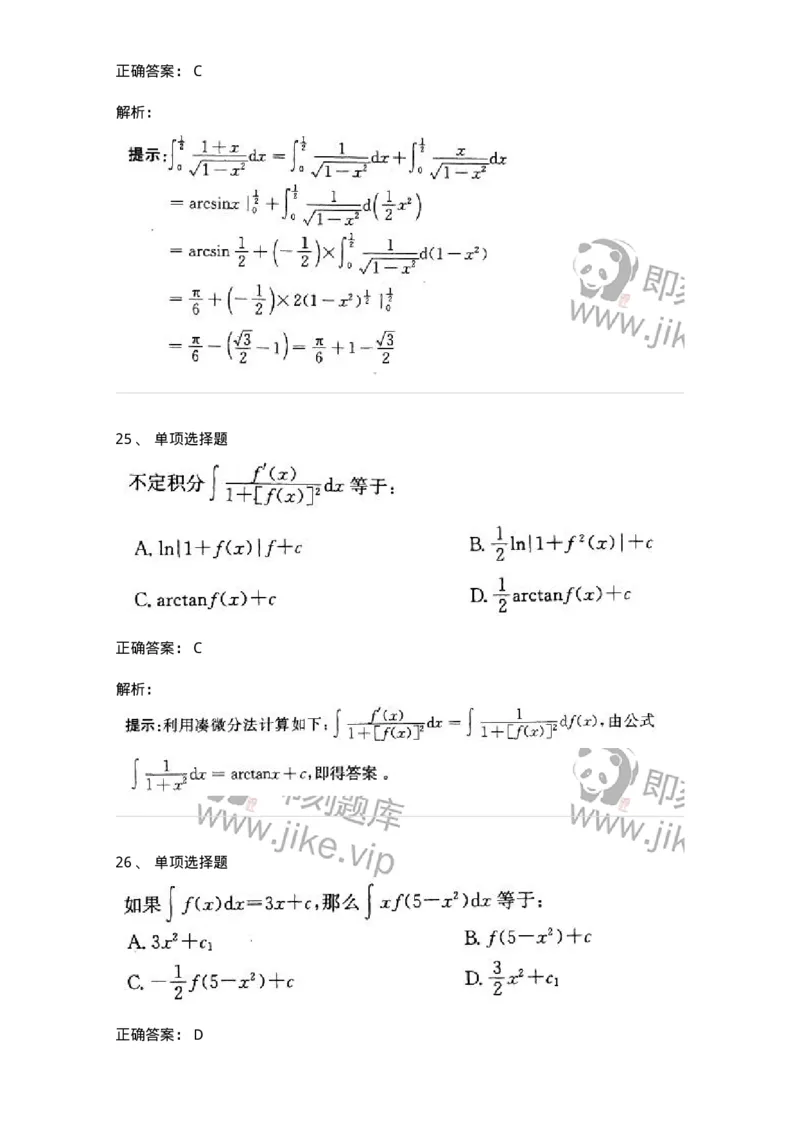 正确答案： C
解析：
提示:∫₀^½ (1+x)/√(1−x²) dx = ∫₀^½ 1/√(1−x²) dx + ∫₀^½ x/√(1−x²) dx
= arcsinx |₀^½ + ∫₀^½ 1/√(1−x²) d(½x²)
= arcsin ½ + (−½)×∫₀^½ 1/√(1−x²) d(1−x²)
= π/6 + (−½)×2(1−x²)^½ |₀^½
= π/6 − (√3/2 −1) = π/6 +1− √3/2
即刻
www.jik
25 、 单项选择题
不定积分∫ f′(x)/(1+[f(x)]²) dx 等于:
A. ln|1+f(x)|f+c
B. ½ln|1+f²(x)|+c
C. arctanf(x)+c
D. ½arctanf(x)+c
正确答案： C
解析：
提示:利用凑微分法计算如下:∫ f′(x)/(1+[f(x)]²) dx = ∫ 1/(1+[f(x)]²) df(x),由公式
∫ 1/(1+x²) dx = arctanx+c,即得答案。
即刻
www.jik
刻题库
www.jike.vip
26 、 单项选择题
如果∫ f(x)dx=3x+c,那么∫ xf(5−x²)dx 等于:
A. 3x²+c₁
B. f(5−x²)+c
C. −½f(5−x²)+c
D. 3/2 x²+c₁
正确答案： D